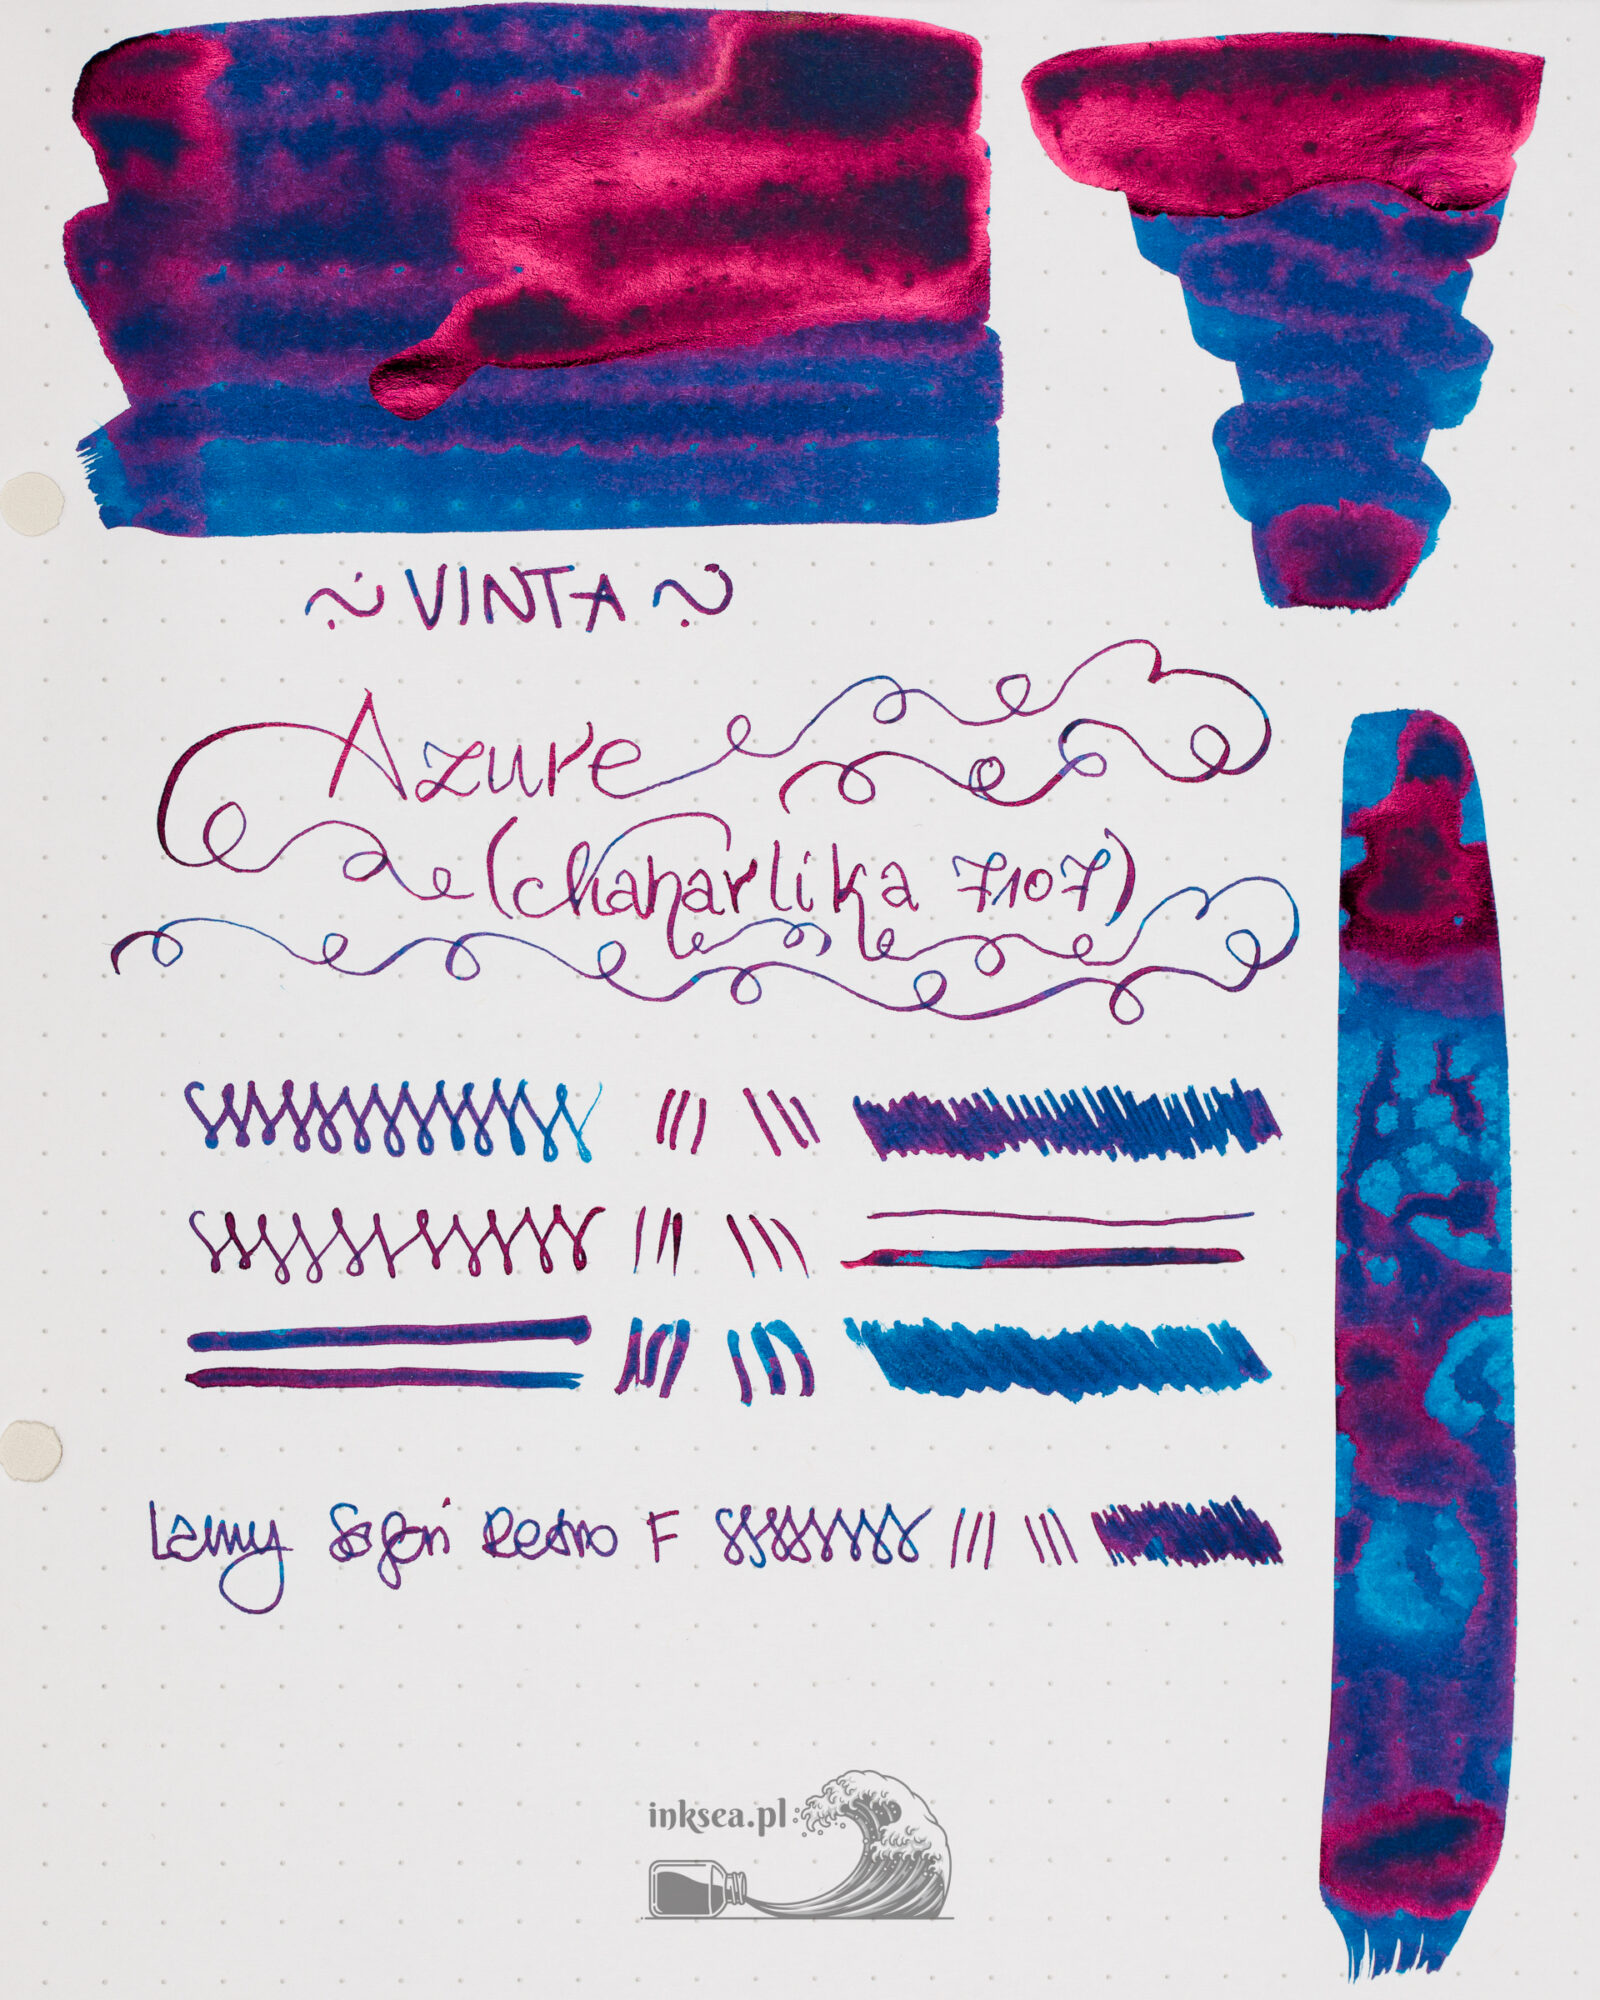 ~ VINTA ~
Azure
(chanarlika 7107)
Lamy Safari Retro F
inksea.pl